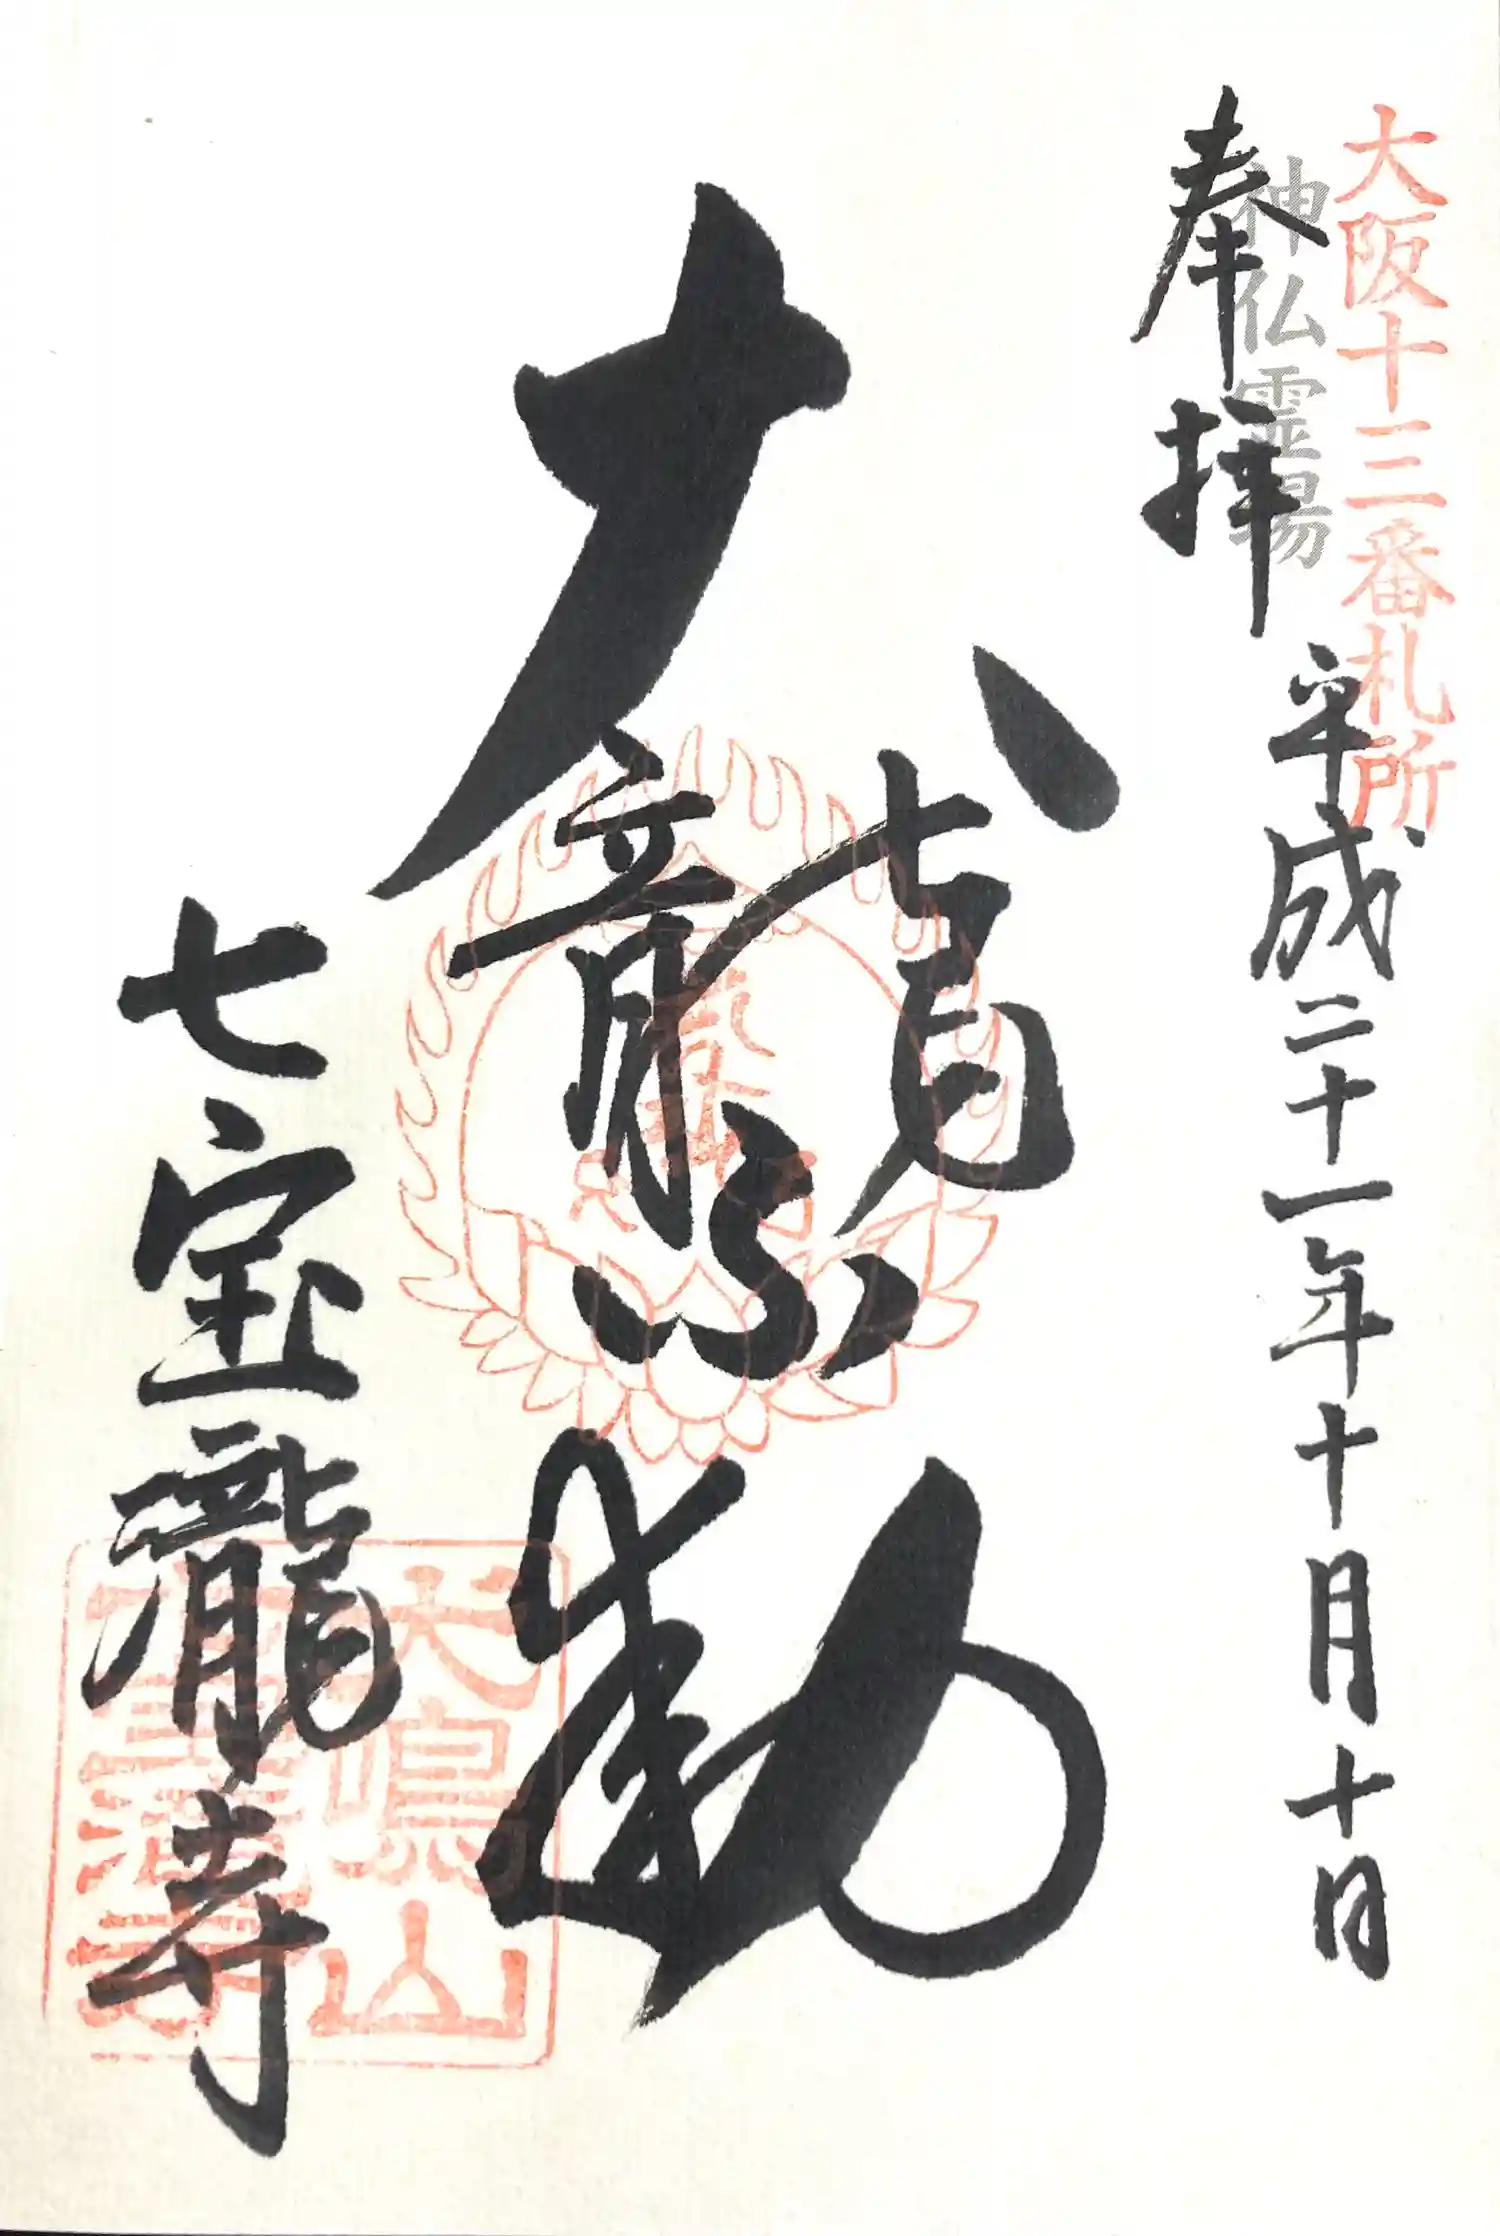 大阪十三番札所
神仏霊場
奉拝
平成二十一年十月十日
大龍不動
七宝瀧寺
犬鳴山